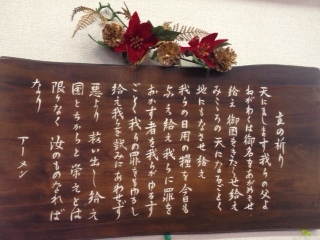 主の祈り
天にまします我らの父よ
ねがわくは御名をあがめさせ
給え 御国をきたらせ給え
みこころの天になるごとく
地にもなさせ給え
我らの日用の糧を今日も
与え給え 我らに罪を
おかす者を我らがゆるす
ごとく我らの罪をもゆるし
給え 我らを試みにあわせず
悪より 救い出し 給え
國とちからと 栄えとは
限りなく 汝のものなれば
なり
アーメン